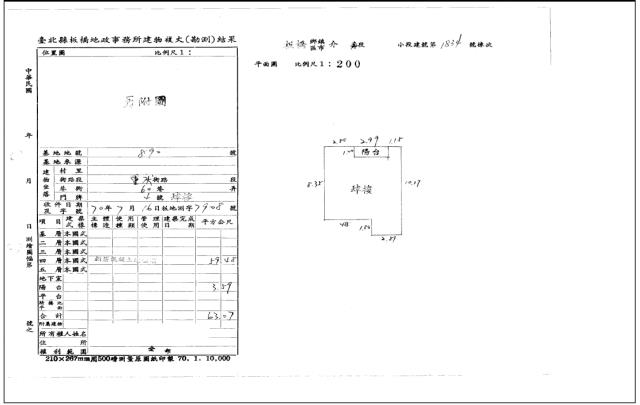 臺北縣板橋地政事務所建物複丈(勘測)結果
位置圖 比例尺1：
另附圖
中華民國 年 月 日測繪圖幅第 號之
基地地號 890 號
基地來源
建物坐落
村里
街路段 重慶街路 段
巷街 60巷 弄
門牌 號
收件日期及字號 70年7月16日板地測字7908號
項目 建築式樣 主體構造 使用種類 管理使用 建築完成日期 平方公尺
基層本國式
二層本國式
三層本國式
四層本國式 59.48
五層本國式
地下室
陽台 3.59
平台
合計 63.07
附屬建物
所有權人姓名
住所
權利範圍 全部
210×267mm用500磅測量原圖紙印製 70.1.10,000
板橋 鄉鎮區市 段 小段建號第1834號棟次
平面圖 比例尺1：200
2.99 1.15
陽台
8.35
1.50
2.89